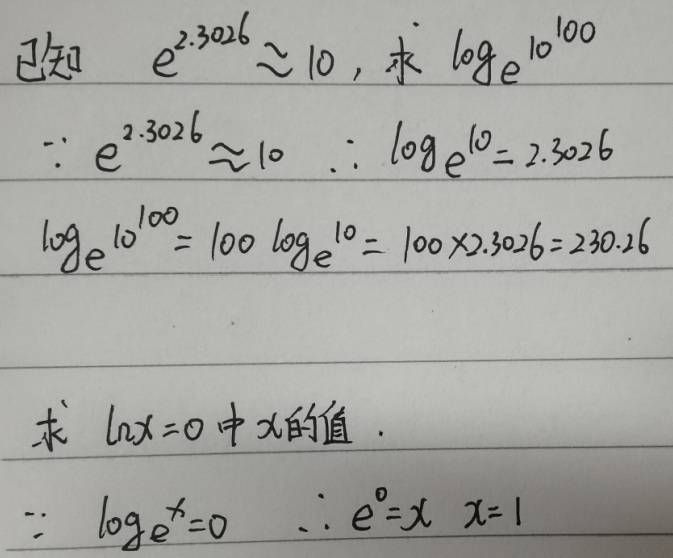 已知 e^2.3026≈10，求 log_e 10^100
∵ e^2.3026≈10 ∴ log_e 10=2.3026
log_e 10^100=100 log_e 10=100×2.3026=230.26
求 lnx=0中x的值.
∵ log_e x=0 ∴ e^0=x x=1